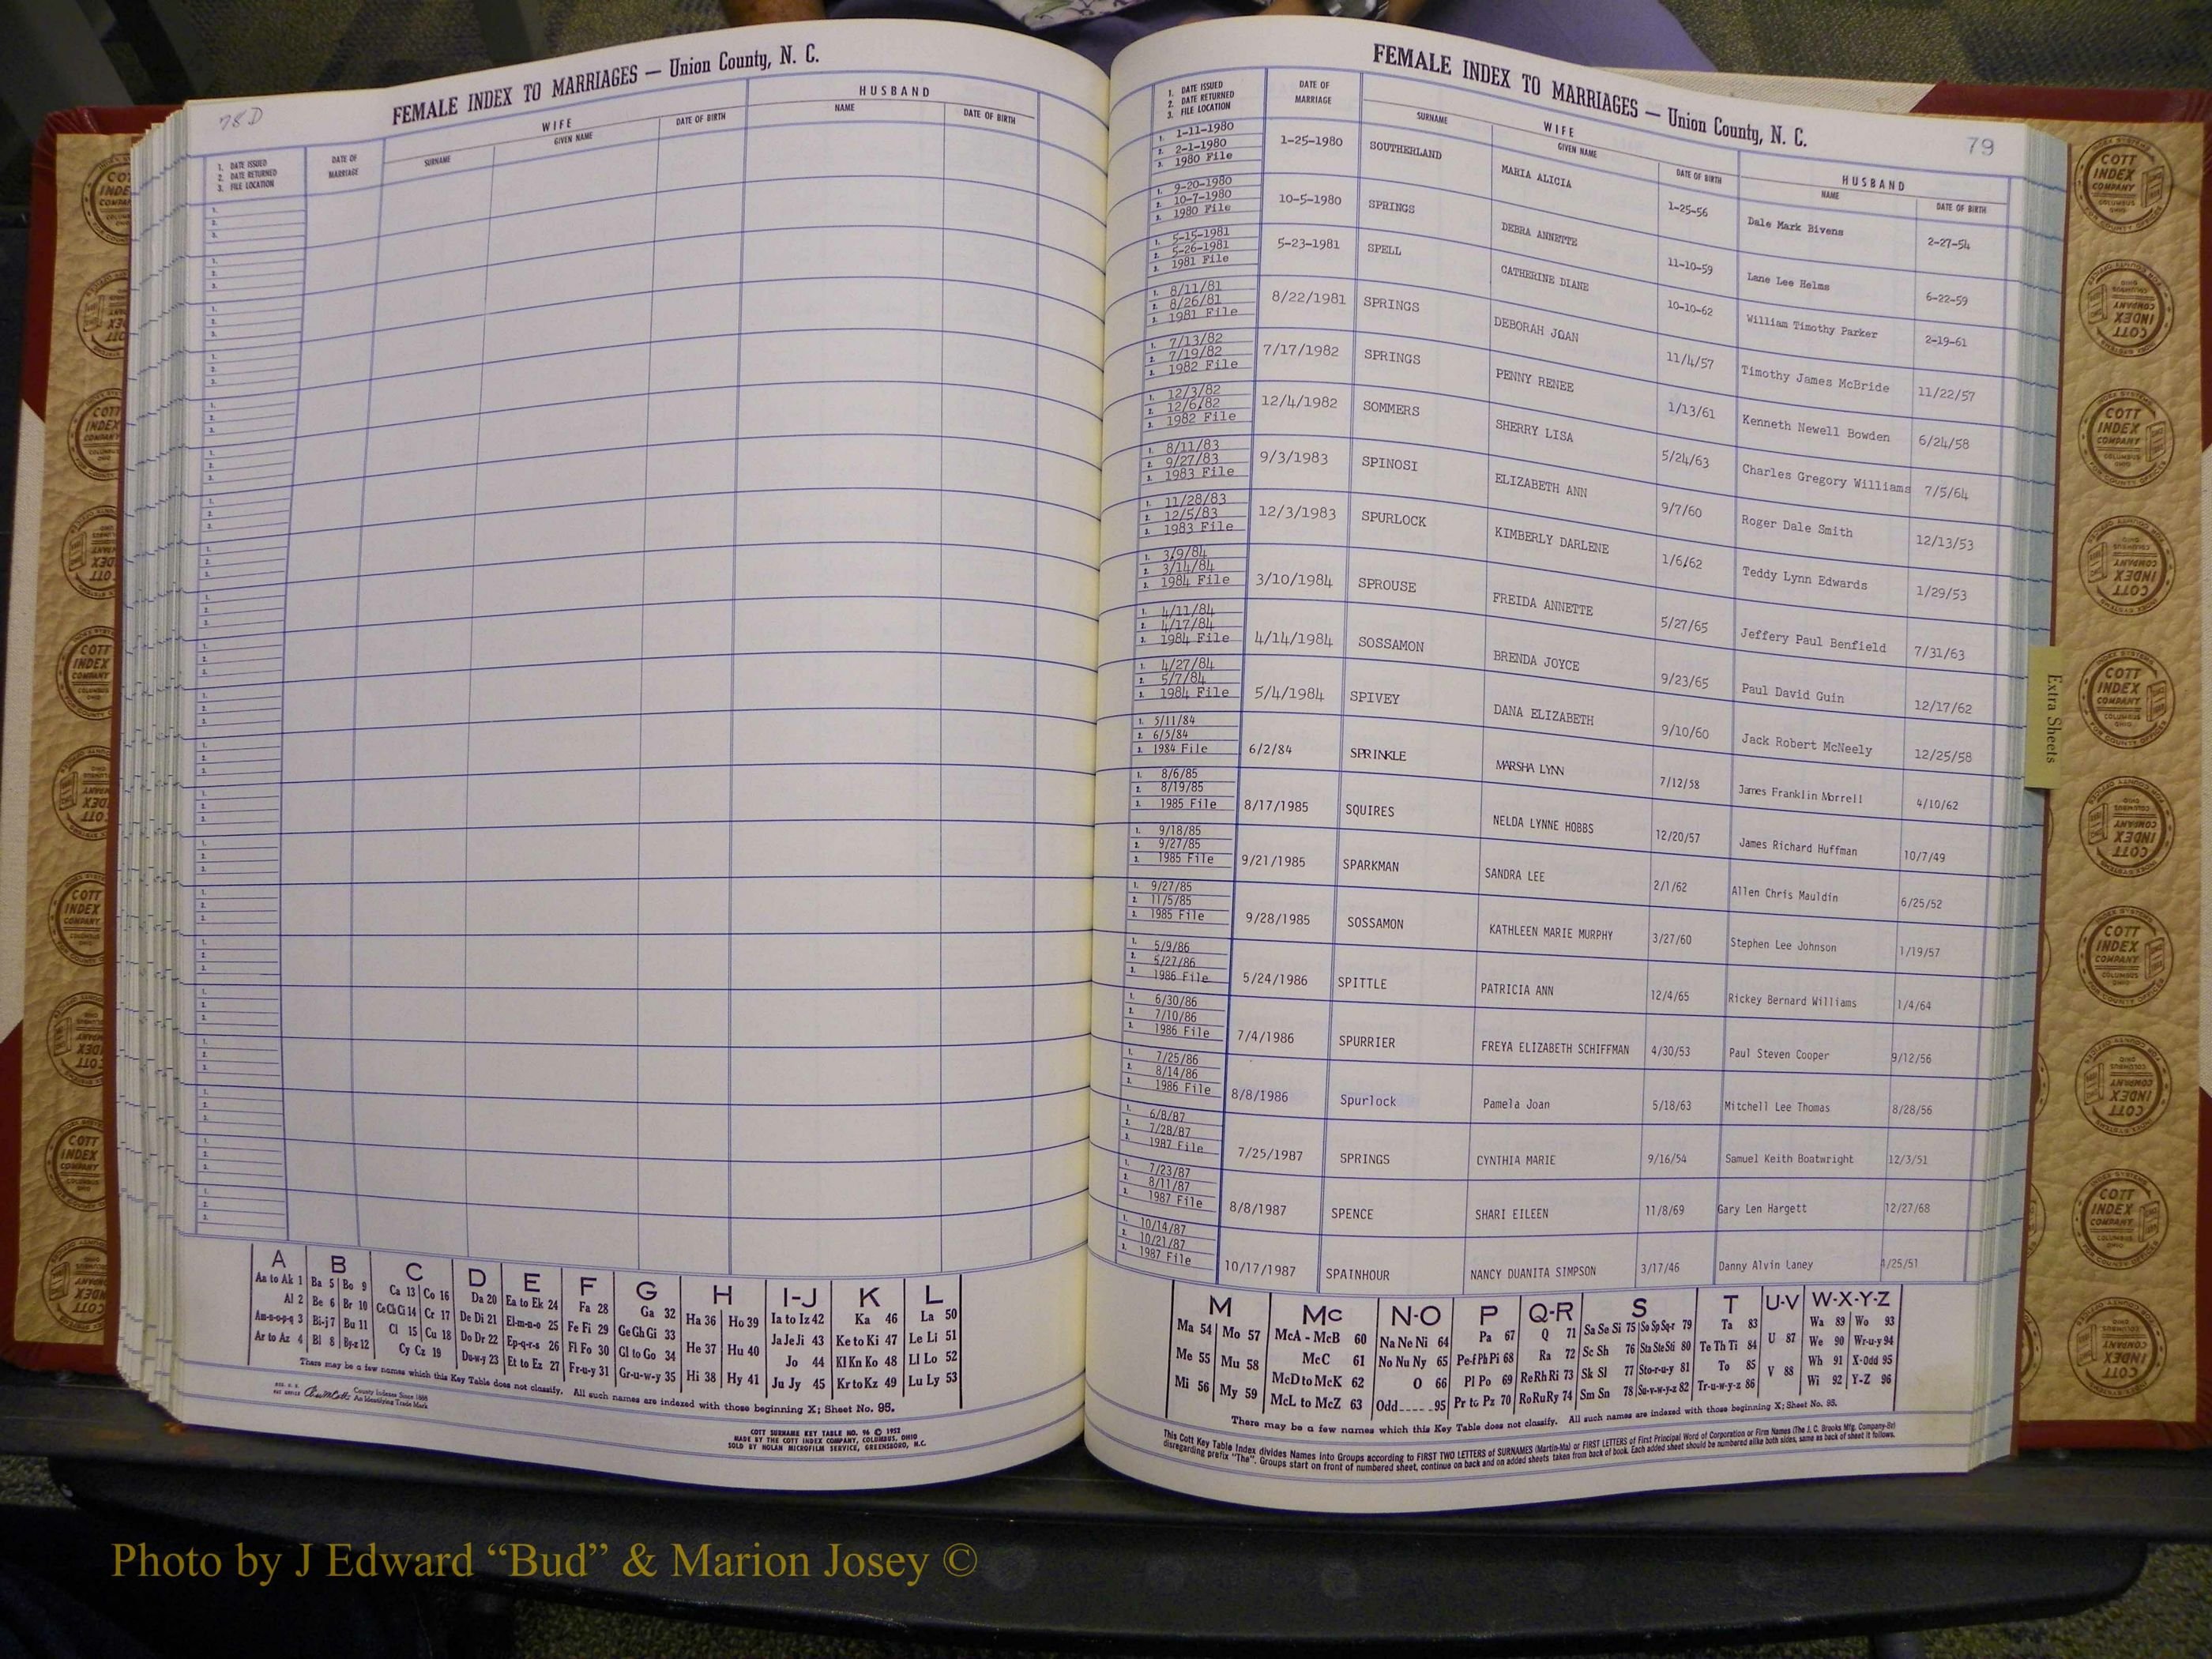 78D
FEMALE INDEX TO MARRIAGES — Union County, N. C.
1. DATE ISSUED
2. DATE RETURNED
3. FILE LOCATION
DATE OF MARRIAGE
WIFE
SURNAME GIVEN NAME DATE OF BIRTH
HUSBAND
NAME DATE OF BIRTH
A
Aa to Ak 1
Al 2
Am-n-o-p-q 3
Ar to Az 4
B
Ba 5 Bo 9
Be 6 Br 10
Bi-j 7 Bu 11
Bl 8 By-z 12
C
Ca 13 Co 16
Ce Ch Ci 14 Cr 17
Cl 15 Cu 18
Cy Cz 19
D
Da 20
De Di 21
Do Dr 22
Du-w-y 23
E
Ea to Ek 24
El-m-n-o 25
Ep-q-r-s 26
Et to Ez 27
F
Fa 28
Fe Fi 29
Fl Fo 30
Fr-u-y 31
G
Ga 32
Ge Gh Gi 33
Gl to Go 34
Gr-u-w-y 35
H
Ha 36 Ho 39
He 37 Hu 40
Hi 38 Hy 41
I-J
Ia to Iz 42
Ja Je Ji 43
Jo 44
Ju Jy 45
K
Ka 46
Ke to Ki 47
Kl Kn Ko 48
Kr to Kz 49
L
La 50
Le Li 51
Ll Lo 52
Lu Ly 53
There may be a few names which this Key Table does not classify. All such names are indexed with those beginning X; Sheet No. 95.
County Indexes Since 1888
An Identifying Trade Mark
COTT SURNAME KEY TABLE NO. 96 © 1952
MADE BY THE COTT INDEX COMPANY, COLUMBUS, OHIO
SOLD BY NOLAN MICROFILM SERVICE, GREENSBORO, N.C.
FEMALE INDEX TO MARRIAGES — Union County, N. C.
79
1. DATE ISSUED
2. DATE RETURNED
3. FILE LOCATION
DATE OF MARRIAGE
WIFE
SURNAME GIVEN NAME DATE OF BIRTH
HUSBAND
NAME DATE OF BIRTH
1. 1-11-1980
2. 2-1-1980
3. 1980 File
1-25-1980 SOUTHERLAND MARIA ALICIA 1-25-56 Dale Mark Bivens 2-27-54
1. 9-20-1980
2. 10-7-1980
3. 1980 File
10-5-1980 SPRINGS DEBRA ANNETTE 11-10-59 Lane Lee Helms 6-22-59
1. 5-15-1981
2. 5-26-1981
3. 1981 File
5-23-1981 SPELL CATHERINE DIANE 10-10-62 William Timothy Parker 2-19-61
1. 8/11/81
2. 8/26/81
3. 1981 File
8/22/1981 SPRINGS DEBORAH JOAN 11/4/57 Timothy James McBride 11/22/57
1. 7/13/82
2. 7/19/82
3. 1982 File
7/17/1982 SPRINGS PENNY RENEE 1/13/61 Kenneth Newell Bowden 6/24/58
1. 12/3/82
2. 12/6/82
3. 1982 File
12/4/1982 SOMMERS SHERRY LISA 5/24/63 Charles Gregory Williams 7/5/64
1. 8/11/83
2. 9/27/83
3. 1983 File
9/3/1983 SPINOSI ELIZABETH ANN 9/7/60 Roger Dale Smith 12/13/53
1. 11/28/83
2. 12/5/83
3. 1983 File
12/3/1983 SPURLOCK KIMBERLY DARLENE 1/6/62 Teddy Lynn Edwards 1/29/53
1. 3/9/84
2. 3/14/84
3. 1984 File
3/10/1984 SPROUSE FREIDA ANNETTE 5/27/65 Jeffery Paul Benfield 7/31/63
1. 4/11/84
2. 4/17/84
3. 1984 File
4/14/1984 SOSSAMON BRENDA JOYCE 9/23/65 Paul David Guin 12/17/62
1. 4/27/84
2. 5/7/84
3. 1984 File
5/4/1984 SPIVEY DANA ELIZABETH 9/10/60 Jack Robert McNeely 12/25/58
1. 5/11/84
2. 6/5/84
3. 1984 File
6/2/84 SPRINKLE MARSHA LYNN 7/12/58 James Franklin Morrell 4/10/62
1. 8/6/85
2. 8/19/85
3. 1985 File
8/17/1985 SQUIRES NELDA LYNNE HOBBS 12/20/57 James Richard Huffman 10/7/49
1. 9/18/85
2. 9/27/85
3. 1985 File
9/21/1985 SPARKMAN SANDRA LEE 2/1/62 Allen Chris Mauldin 6/25/52
1. 9/27/85
2. 11/5/85
3. 1985 File
9/28/1985 SOSSAMON KATHLEEN MARIE MURPHY 3/27/60 Stephen Lee Johnson 1/19/57
1. 5/9/86
2. 5/27/86
3. 1986 File
5/24/1986 SPITTLE PATRICIA ANN 12/4/65 Rickey Bernard Williams 1/4/64
1. 6/30/86
2. 7/10/86
3. 1986 File
7/4/1986 SPURRIER FREYA ELIZABETH SCHIFFMAN 4/30/53 Paul Steven Cooper 9/12/56
1. 7/25/86
2. 8/14/86
3. 1986 File
8/8/1986 Spurlock Pamela Joan 5/18/63 Mitchell Lee Thomas 8/28/56
1. 6/8/87
2. 7/28/87
3. 1987 File
7/25/1987 SPRINGS CYNTHIA MARIE 9/16/54 Samuel Keith Boatwright 12/3/51
1. 7/23/87
2. 8/11/87
3. 1987 File
8/8/1987 SPENCE SHARI EILEEN 11/8/69 Gary Len Hargett 12/27/68
1. 10/14/87
2. 10/21/87
3. 1987 File
10/17/1987 SPAINHOUR NANCY DUANITA SIMPSON 3/17/46 Danny Alvin Laney 4/25/51
M
Ma 54 Mo 57
Me 55 Mu 58
Mi 56 My 59
Mc
McA - McB 60
McC 61
McD to McK 62
McL to McZ 63
N-O
Na Ne Ni 64
No Nu Ny 65
O 66
Odd 95
P
Pa 67
Pe-f Ph Pi 68
Pl Po 69
Pr to Pz 70
Q-R
Q 71
Ra 72
Re Rh Ri 73
Ro Ru Ry 74
S
Sa Se Si 75 So Sp Sq-r 79
Sc Sh 76 Sta Ste Sti 80
Sk Sl 77 Sto-r-u-y 81
Sm Sn 78 Su-v-w-y-z 82
T
Ta 83
Te Th Ti 84
To 85
Tr-u-w-y-z 86
U-V
U 87
V 88
W-X-Y-Z
Wa 89 Wo 93
We 90 Wr-u-y 94
Wh 91 X-Odd 95
Wi 92 Y-Z 96
There may be a few names which this Key Table does not classify. All such names are indexed with those beginning X; Sheet No. 95.
This Cott Key Table Index divides Names into Groups according to FIRST TWO LETTERS of SURNAMES (Martin-Ma) or FIRST LETTERS of First Principal Word of Corporation or Firm Names (The J. C. Brooks Mfg. Company-Br)
disregarding prefix "The". Groups start on front of numbered sheet, continue on back and on added sheets taken from back of book. Each added sheet should be numbered alike both sides, same as back of sheet it follows.
Extra Sheets
COTT INDEX COMPANY COLUMBUS OHIO
Photo by J Edward “Bud” & Marion Josey ©